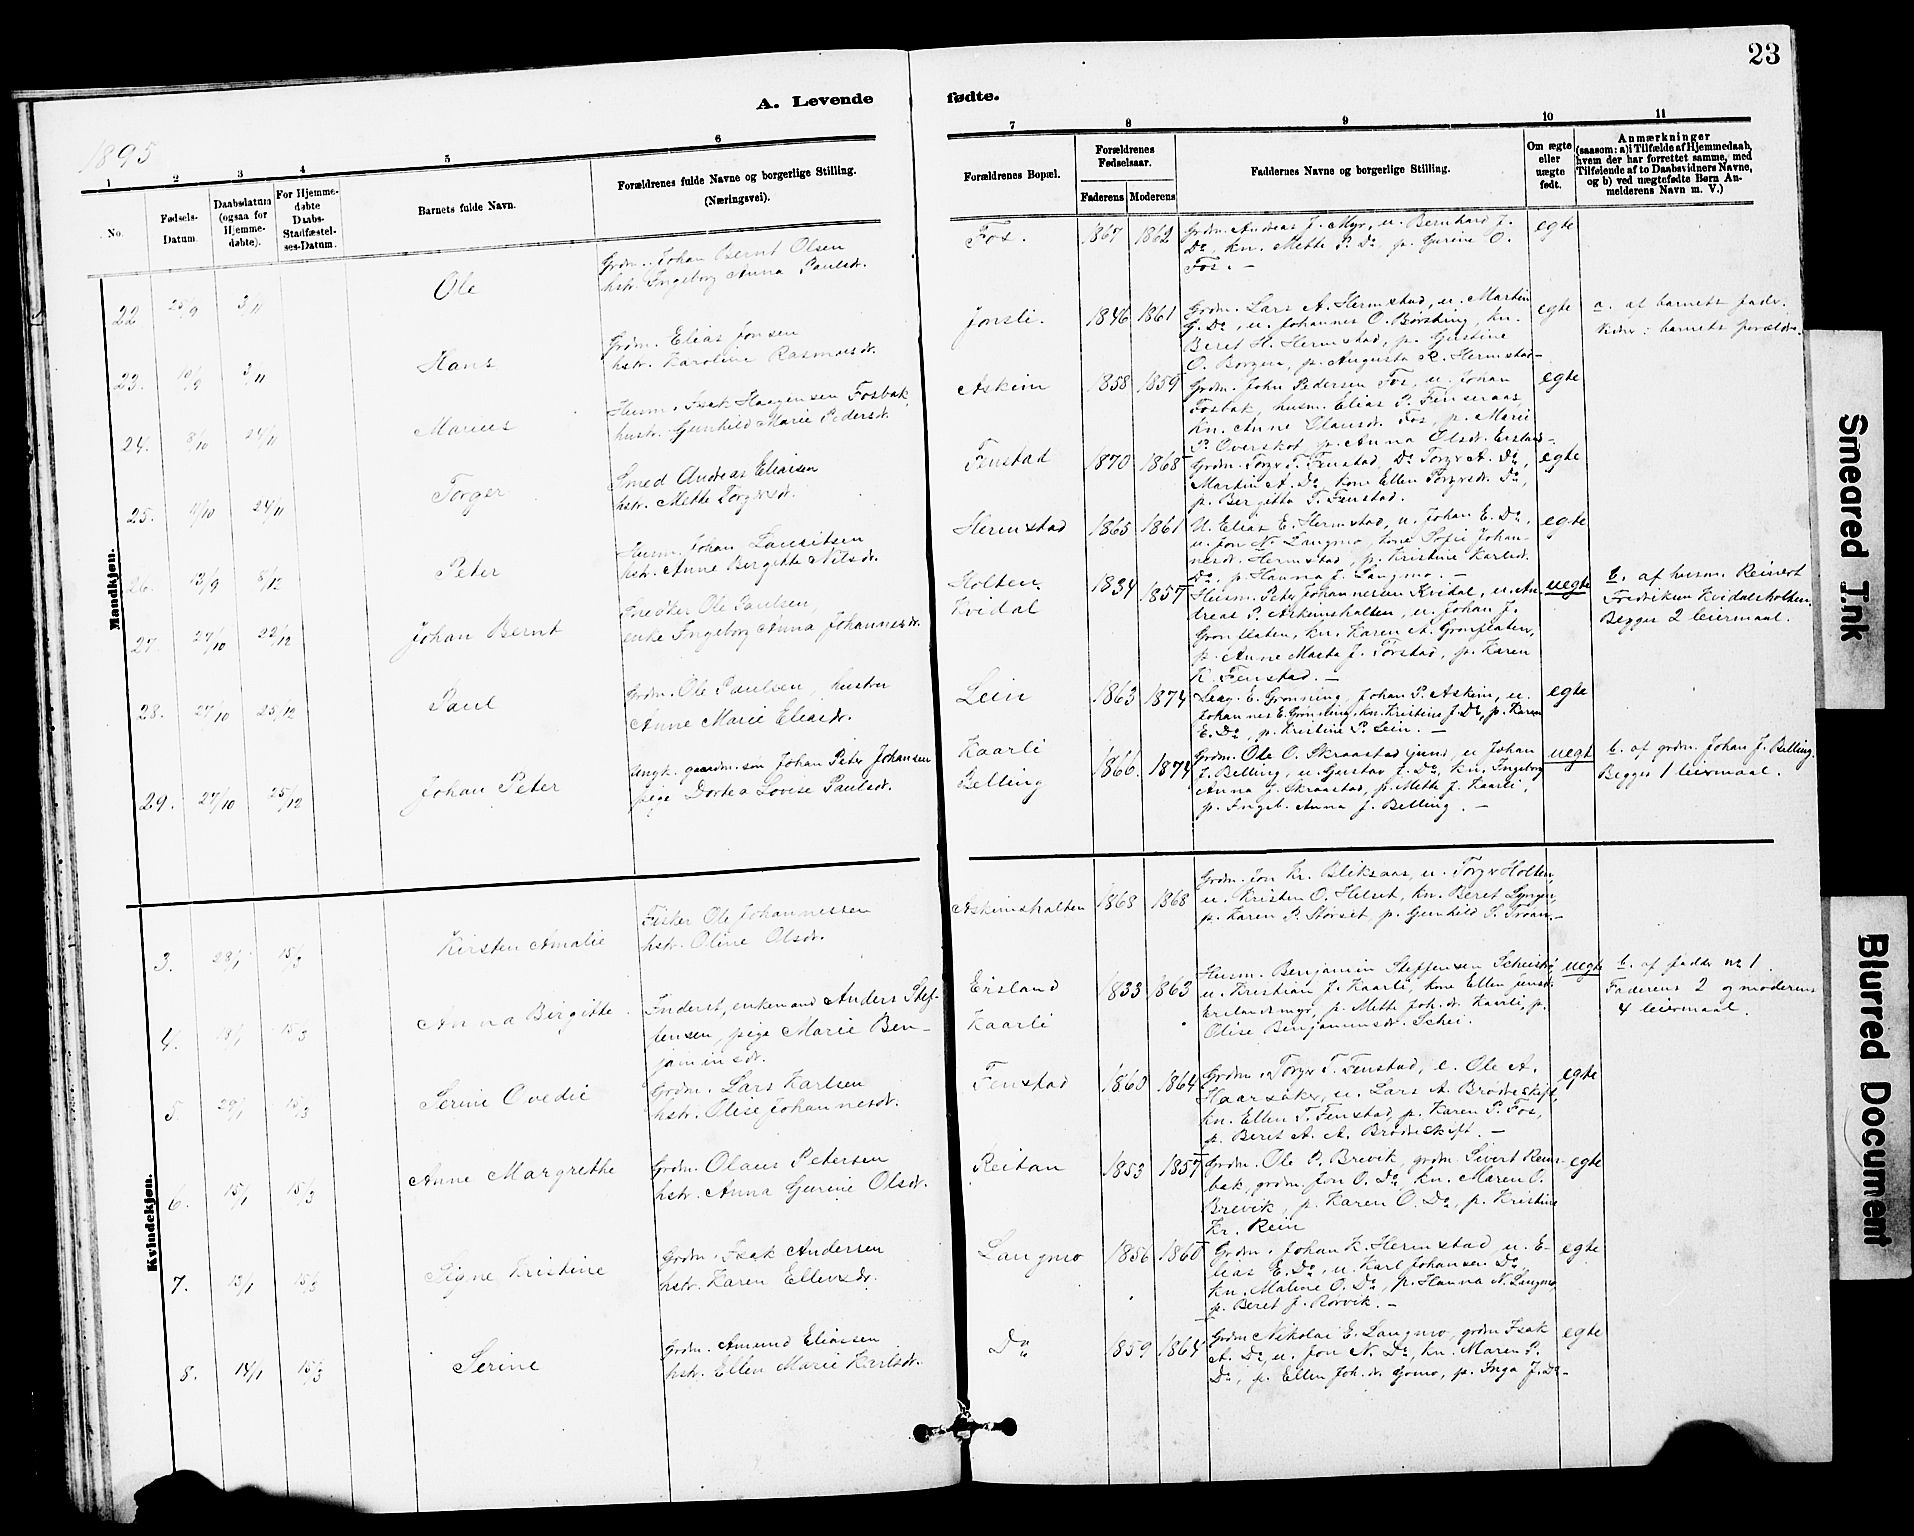 23
A. Levende
fødte.
1895
1
2
3
4
5
6
7
8
9
10
11
No.
Fødsels-
Datum.
Daabsdatum
(ogsaa for
Hjemme-
døbte).
For Hjemme-
døbte
Daabs-
Stadfæstel-
ses-Datum.
Barnets fulde Navn.
Forældrenes fulde Navne og borgerlige Stilling.
(Næringsvei).
Forældrenes Bopæl.
Forældrenes
Fødselsaar.
Faderens
Moderens
Faddernes Navne og borgerlige Stilling.
Om ægte
eller
uægte
født.
Anmærkninger
(saasom: a) i Tilfælde af Hjemmedaab,
hvem der har forrettet samme, med
Tilføiende af to Daabsvidners Navne,
og b) ved uægtefødte Børn An-
melderens Navn m. V.)
Mandkjøn.
22 25/9 3/11
Ole
Grdm. Johan Bernt Olsen
hstr. Ingeborg Anna Paulsdr.
Fos.
1867 1862
Grdm. Andreas J. Myr, u. Bernhard J.
Do, kn. Mette P. Do, p. Gurine O.
Fos. —
egte
23. 3/11
Hans
Grdm. Elias Jonsen
hstr. Karoline Rasmusdr.
Jonsli.
1846 1861
Grdm. Lars A. Hermstad, u. Martin
G. Do, u. Johannes O. Børsting, kn.
Beret H. Hermstad, p. Gustine
O. Borgen, p. Augusta R. Hermstad—
egte
a. af barnets fader.
Vidner: barnets forældre.
24. 8/10 24/11
Marius
Husm. Isak Haagensen Fosbak
hustr. Gunhild Marie Pedersdr.
Askim
1858 1859
Grdm. John Pedersen Fos, u. Johan
Fosbak, husm. Elias P. Finseraas
kn. Anne Olausdr. Fos, p. Marie
P. Overskot, p. Anna Olsdr. Ersland—
egte
25. 11/10 24/11
Torger
Smed Andreas Eliasen
hstr. Mette Torgersdr.
Fenstad
1870 1868
Grdm. Torger T. Fenstad, Do Torger A. Do,
Martin A. Do, kone Ellen Torgersdr. Do,
p. Bergitta T. Fenstad.
egte
26. 13/9 8/12
Peter
Husm. Johan Lauritsen
hstr. Anne Birgitte Nilsdr.
Hermstad
1865 1861
U. Elias E. Hermstad, u. Johan E. Do,
u. Jon N. Langmo, kone Sofie Johan-
nesdr. Hermstad, p. Kristine Karlsd.
Do, p. Hanna J. Langmo. —
egte
27. 27/10 22/12
Johan Bernt
Snedker Ole Paulsen,
enke Ingeborg Anna Johannesdr.
Holten
Kvidal
1834 1857
Husm. Peter Johannesen Kvidal, u. An
dreas P. Askimshalten, u. Johan J.
Grønflaten, kn. Karen A. Grønflaten,
p. Anne Marta J. Torstad, p. Karen
K. Fenstad. —
uegte
b. af husm. Reinert
Fredriksen Kvidalsholten.
Begges 2 leiermaal.
28. 27/10 25/12
Paul
Grdm. Ole Paulsen, hustru
Anne Marie Eliasdr.
Lein
1863 1874
E. Grønning, Johan P. Askim, u.
Johannes E. Grønning, kn. Kristine J. Do, p. Karen
E. Do, p. Kristine P. Lein. —
egte
29. 27/10 25/12
Johan Peter
Ungk. gaardm.søn Johan Peter Johansen
pige Dortea Lovise Paulsdr.
Kaarli
Belling
1866. 1874
Grdm. Ole O. Skraastad jund, u. Johan
J. Belling, u. Gustav J. Do, kn. Ingeborg
Anna J. Skraastad, p. Mette J. Kaarli,
p. Ingeb. Anna J. Belling. —
uegte
b. af grdm. Johan J. Belling.
Begges 1 leiermaal.
Kvindekjøn.
3. 28/1 15/3
Kirsten Amalie
Fisker Ole Johannessen
hstr. Oline Olsdr.
Askimshalten
1868 1868
Grdm. Jon Kr. Bliksaas, u. Torger Holten,
u. Kristen O. Helset, kn. Beret Lyngen,
p. Karen P. Størset p. Gunhild S. Troan.—
4. 18/1 15/3
Anna Birgitte
Inderst, enkemand Anders Stef-
fensen, pige Marie Ben-
jaminsdr.
Ersland
Kaarli
1833 1863
Husm. Benjamin Steffensen Scheistrø,
u. Kristian J. Kaarli, kone Ellen
Erslandsmyr, p. Mette Joh.dr. Kaarli, p.
Olise Benjaminsdr. Schei.
uegte
b. af fadder nr 1.
Faderens 2 og moderens
4 leiermaal.
5. 29/1 15/3
Serine Ovedie
Grdm. Lars Karlsen
hstr. Olise Johannesdr.
Fenstad
1860 1864
Grdm. Torger T. Fenstad, e. Ole A.
Haarsaker, u. Lars A. Brødreskift,
kn. Ellen T. Fenstad, p. Karen P. Fos,
p. Beret A. A. Brødreskift. —
egte
6. 15/1 15/3
Anne Margrethe
Grdm. Olaus Petersen
hstr. Anna Gurine Olsdr.
Reitan
1853 1857
Grdm. Ole P. Brevik, grdm. Sivert Reins-
bak, grdm. Jon O. Do, kn. Maren O.
Brevik, p. Karen O. Do, p. Kristine
Kr. Rein
egte
7. 13/1 15/3
Signe Kristine
Grdm. Isak Andersen
hstr. Karen Ellevsdr.
Langmo
1856 1860
Grdm. Johan K. Hermstad, u. E-
lias E. Do, u. Karl Johansen Do,
kn. Maline O. Do, p. Hanna N. Langmo,
p. Beret J. Rørvik. —
egte
8. 14/1 15/3
Serine
Grdm. Amund Eliassen
hstr. Ellen Marie Karlsdr.
Do
1859 1864
Grdm. Nikolai E. Langmo, grdm Isak
A. Do, u. Jon N. Do, kn. Maren P.
Do, p. Ellen Joh.dr. Gomo, p. Inga J. Do—
egte
Smeared Ink
Blurred Document